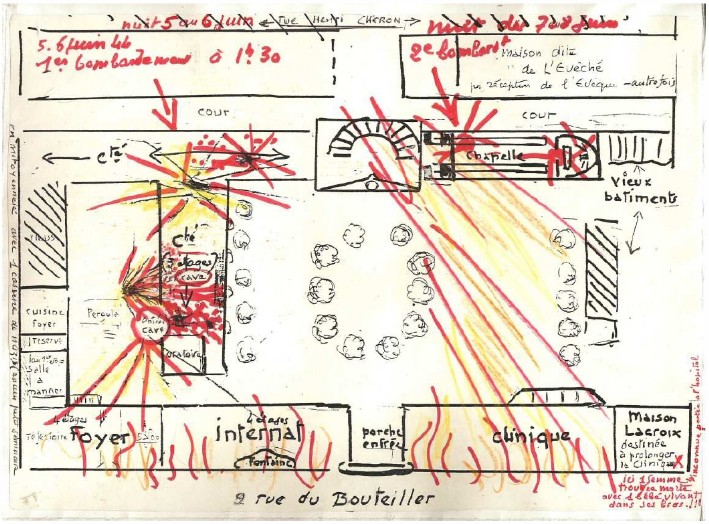 nuit 5 au 6 juin
rue Henri CHERON
nuit du 7 au 8 juin
5.6 juin 44
1er bombardement à 1h30
2e bombardt
Maison dite
de L'Evêché
réception de l'Evêque - autrefois
cour
cour
cté
Chapelle
Vieux
batiments
cté
3 étages
cave
cuisine
Foyer
réserve
Salle
à
manger
Pergola
cave
Oratoire
4 étages
Foyer
4 étages
internat
Fontaine
porche
entrée
clinique
Maison
Lacroix
destinée
à prolonger
la clinique
ici 1 femme
trouvée morte
avec 1 bébé vivant
dans ses bras !!!
2 rue du Bouteiller